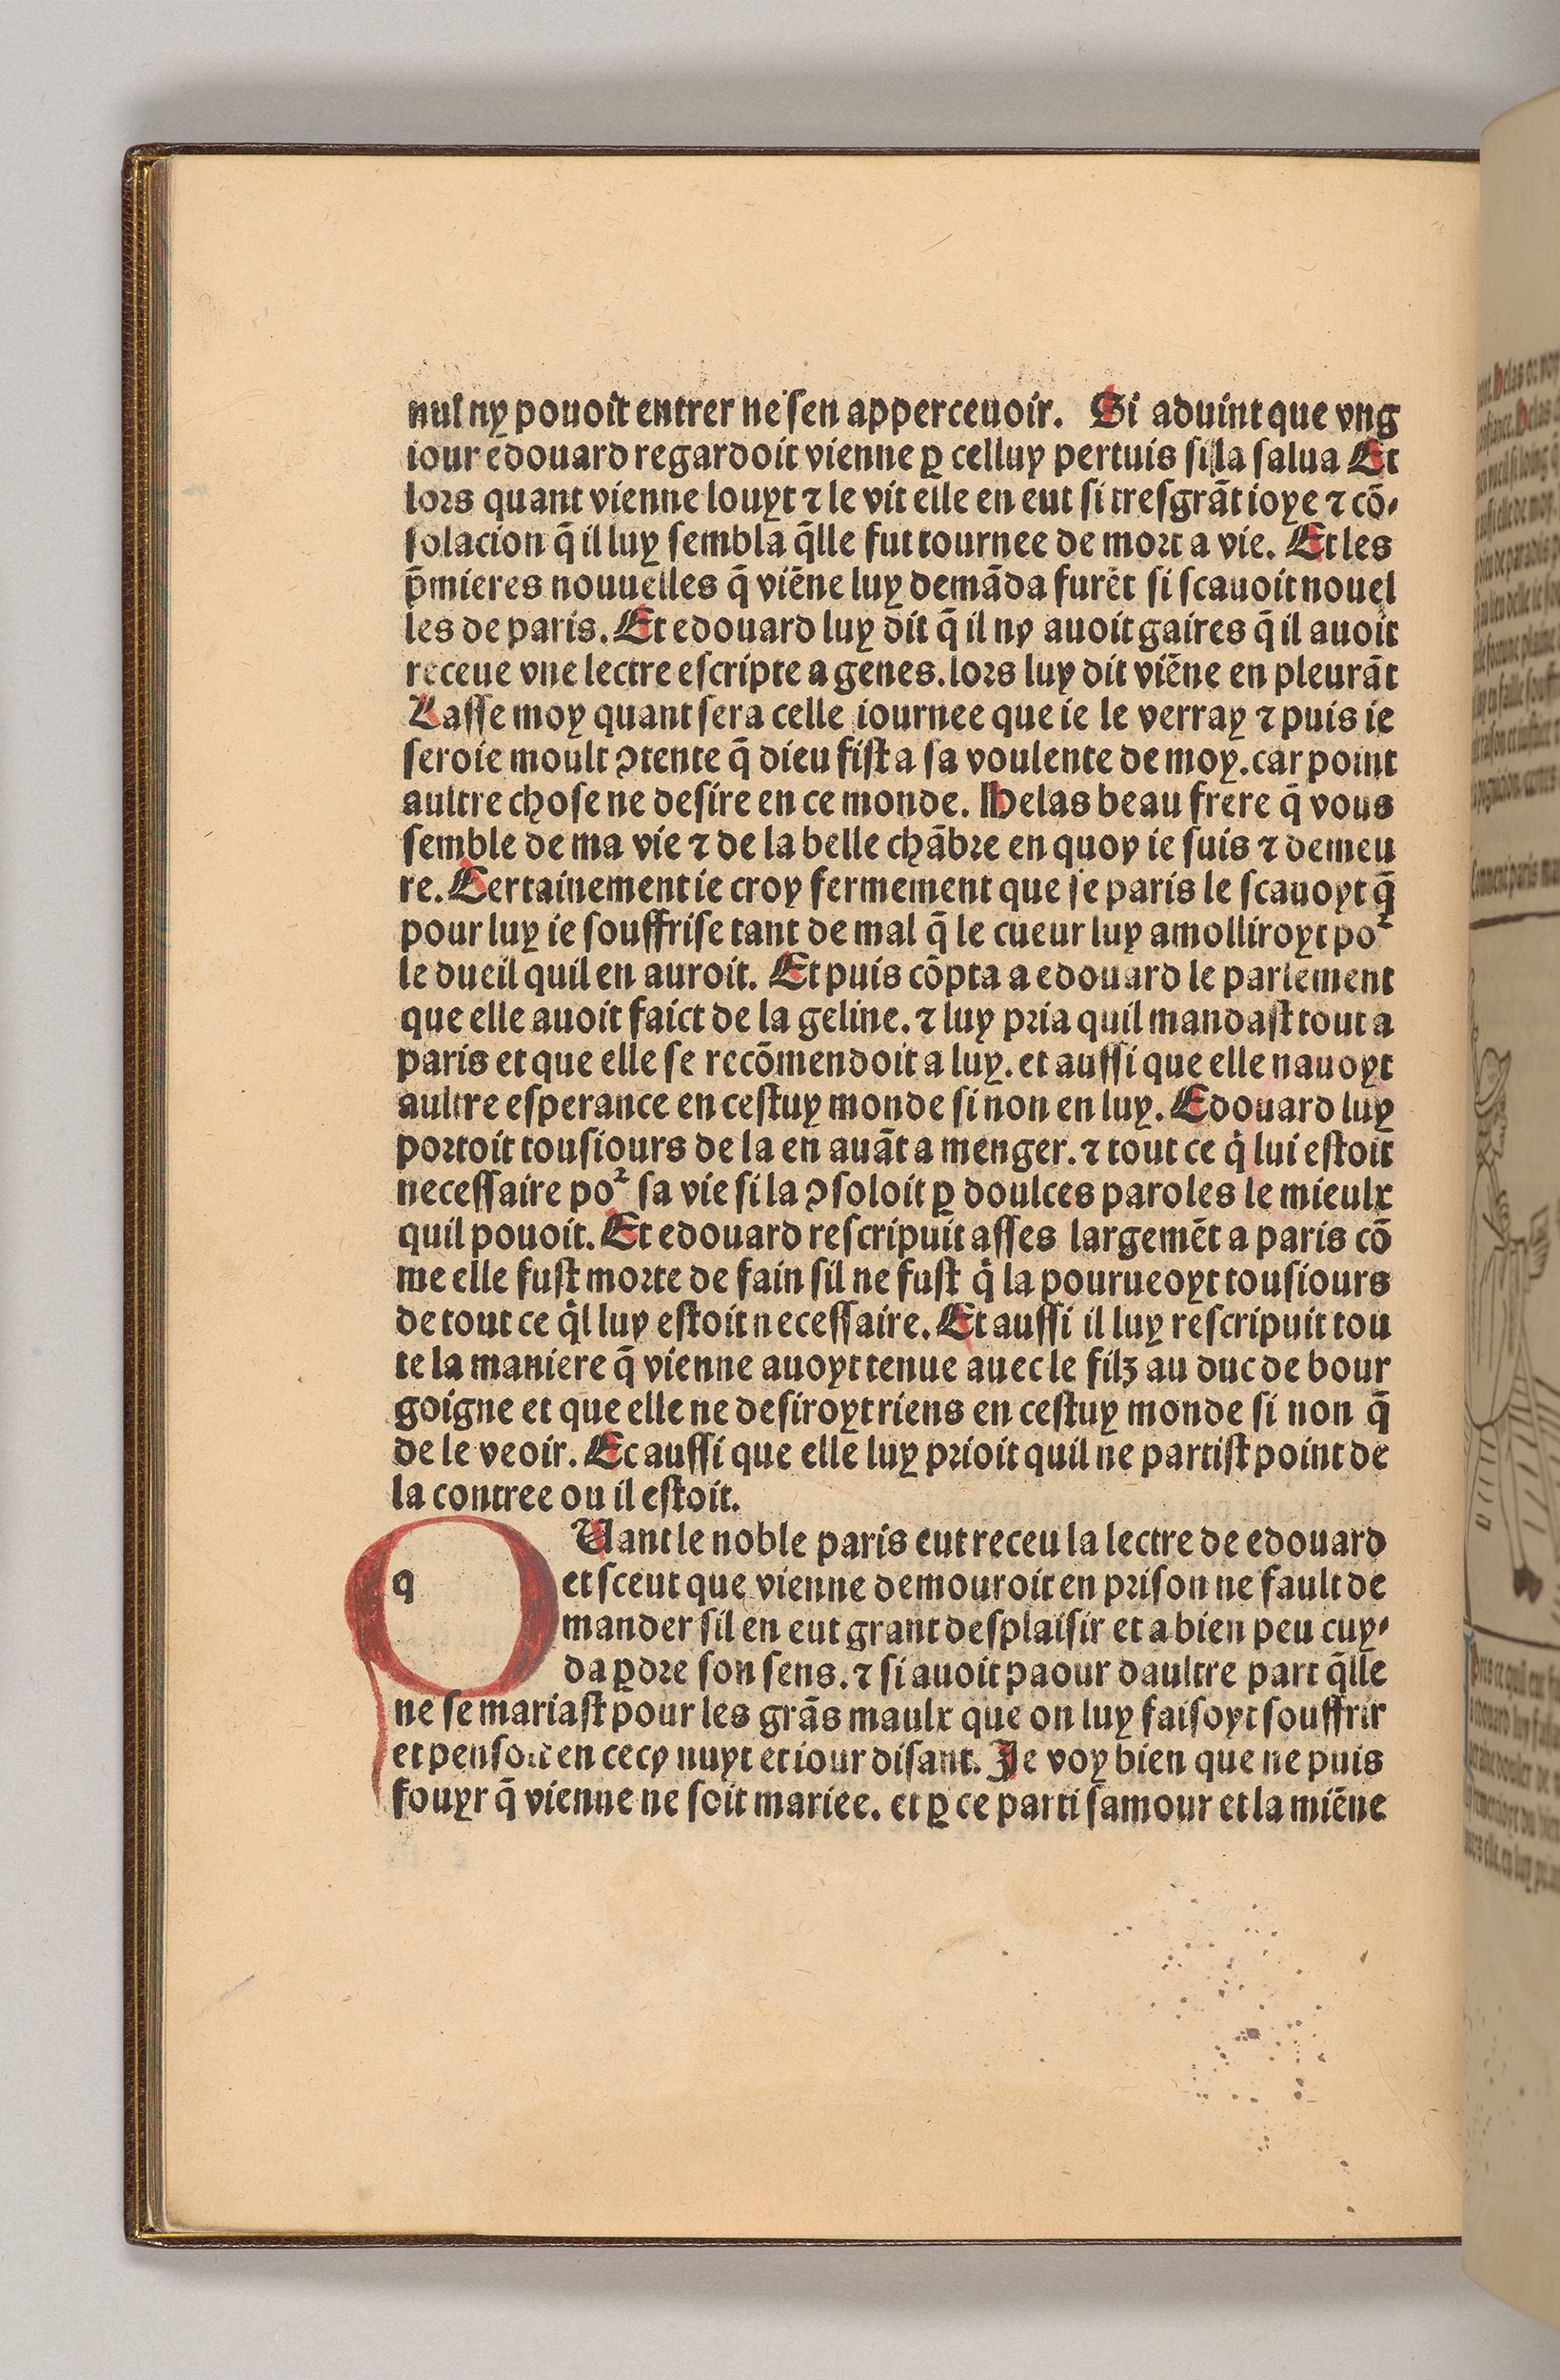 nul ny pouoit entrer ne sen apperceuoir. Si aduint que vng
iour edouard regardoit vienne ꝑ celluy pertuis si la salua Et
lors quant vienne louyt ⁊ le vit elle en eut si tresgrãt ioye ⁊ cõ⸗
solacion q̃ il luy sembla q̃lle fut tournee de mort a vie. Et les
p̃mieres nouuelles q̃ viẽne luy demãda furẽt si scauoit nouel
les de paris. Et edouard luy dit q̃ il ny auoit gaires q̃ il auoit
receue vne lectre escripte a genes. lors luy dit viẽne en pleurãt
Lasse moy quant sera celle iournee que ie le verray ⁊ puis ie
seroie moult ↄtente q̃ dieu fist a sa voulente de moy. car point
aultre chose ne desire en ce monde. Helas beau frere q̃ vous
semble de ma vie ⁊ de la belle chãbre en quoy ie suis ⁊ demeu
re. Certainement ie croy fermement que se paris le scauoyt q̃
pour luy ie souffrise tant de mal q̃ le cueur luy amolliroyt poᷣ
le dueil quil en auroit. Et puis cõpta a edouard le parlement
que elle auoit faict de la geline. ⁊ luy pria quil mandast tout a
paris et que elle se recõmendoit a luy. et aussi que elle nauoyt
aultre esperance en cestuy monde si non en luy. Edouard luy
portoit tousiours de la en auãt a menger. ⁊ tout ce qͥ lui estoit
necessaire poᷣ sa vie si la ↄsoloit ꝑ doulces paroles le mieulx
quil pouoit. Et edouard rescripuit asses largemẽt a paris cõ
me elle fust morte de fain sil ne fust qͥ la pourueoyt tousiours
de tout ce qͥl luy estoit necessaire. Et aussi il luy rescripuit tou
te la maniere q̃ vienne auoyt tenue auec le filz au duc de bour
goigne et que elle ne desiroyt riens en cestuy monde si non q̃
de le veoir. Et aussi que elle luy prioit quil ne partist point de
la contree ou il estoit.
q Uant le noble paris eut receu la lectre de edouard
et sceut que vienne demouroit en prison ne fault de
mander sil en eut grant desplaisir et a bien peu cuy⸗
da ꝑdre son sens. ⁊ si auoit paour daultre part q̃lle
ne se mariast pour les grãs maulx que on luy faisoyt souffrir
et pensoit en cecy nuyt et iour disant. Je voy bien que ne puis
fouyr q̃ vienne ne soit mariee. et ꝑ ce parti samour et la miẽne